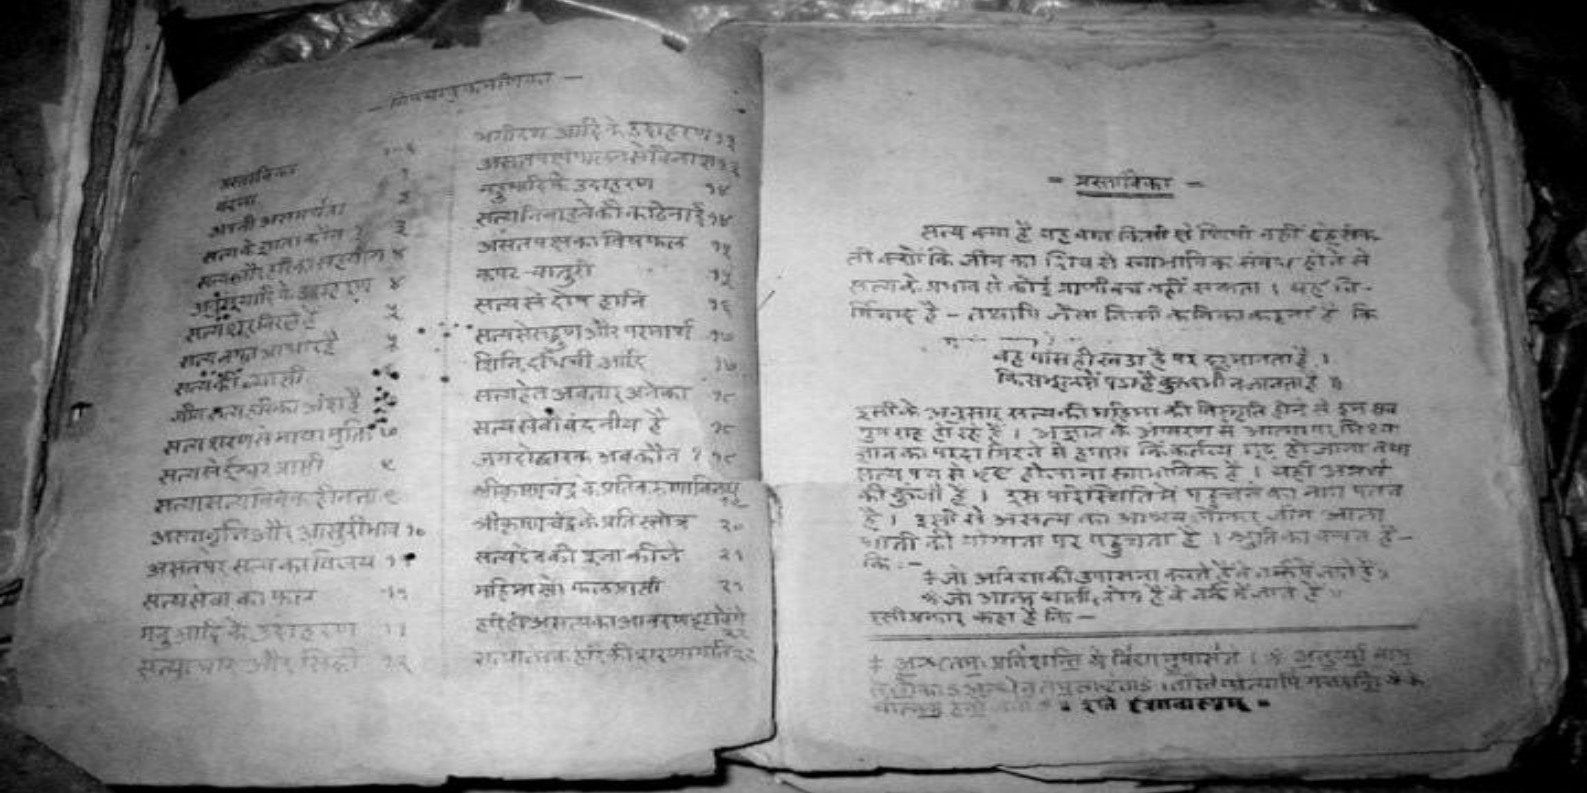 — विषयानुक्रमणिका —
प्रस्ताविका १-६
वंदना १
अपनी असमर्थता २
सत्य के ज्ञाता कौन ? ३
सत्य और हरि का सहयोग ४
आदि के उदाहरण ४
सत्य शूर विरले हैं ५
सत्य सबका आधार है ५
सत्य की व्याप्ती
जीव सत्य हरि का अंश है
सत्य शरण से माया मुक्ति ७
सत्य से ईश्वर प्राप्ती ८
सत्यासत्य विवेक हीनता ९
असत वृत्ति और आसुरी भाव १०
असत पर सत्य का विजय १०
सत्य सेवा का फल ११
मनु आदि के उदाहरण ११
सत्याचार और सिद्धी १२
भगीरथ आदि के उदाहरण १३
असत पक्ष पालन से विनाश १३
नहुषादि के उदाहरण १४
सत्य निबाहने की कठिनाई १४
असत पक्ष का विषफल १५
कपट-चातुरी १५
सत्य से दोष हानि १६
सत्य से सद्गुण और परमार्थ १७
शिवि, दधिची आदि १७
सत्य हेत अवतार अनेका १८
सत्य सेवी वंदनीय है १८
जगदोद्धारक अब कौन ? १८
श्रीकृष्णचंद्र के प्रति करुणा विनय १९
श्रीकृष्णचंद्र के प्रति स्तोत्र २०
सत्यदेव की पूजा कीजे २१
महिमा सो फल प्राप्ती २१
हरि ही असत्य का आवरण हटावेंगे २२
सत्यात्मक हरि की शरणागति २२
= प्रस्ताविका =
सत्य क्या है यह बात किसी से छिपी नहीं रह सक-
ती क्यों कि जीव का शिव से स्वाभाविक संबंध होने से
सत्य के प्रभाव से कोई प्राणी बच नहीं सकता । यह नि-
र्विवाद है - तथापि जैसा किसी कवि का कहना है कि
वह पास ही खडा है पर दूर मानता है ।
किस भूल में पडा है कुछ भी न जानता है ॥
इसी के अनुसार सत्य की महिमा की विस्मृति होने से हम सब
गुमराह हो रहे हैं । अज्ञान के आवरण से आत्मा पर मिथ्या
ज्ञान का परदा गिरने से हमारा किंकर्तव्य मूढ हो जाना तथा
सत्य पथ से भ्रष्ट हो जाना स्वाभाविक है । यही अनर्थ
की कुंजी है । इस परिस्थिति में पहुंचने का नाम पतन
है । इसी से असत्य का आश्रय लेकर जीव आत्म
घाती की योग्यता पर पहुचता है । श्रुति का वचन है -
कि :-
‡ जो अविद्या की उपासना करते हैं वे
* जो आत्म घाती लोग है वे नर्क में जाते हैं ॥
इसी प्रकार कहा है कि -
‡ अन्धन्तमः प्रविशन्ति ये विद्यामुपासते । * असुर्या नाम
ते लोका ऽ अन्धेन तमसावृताः । तांस्ते प्रेत्यापि गच्छन्ति ये के
चात्महनो जनाः = इति ईशावास्यम् =